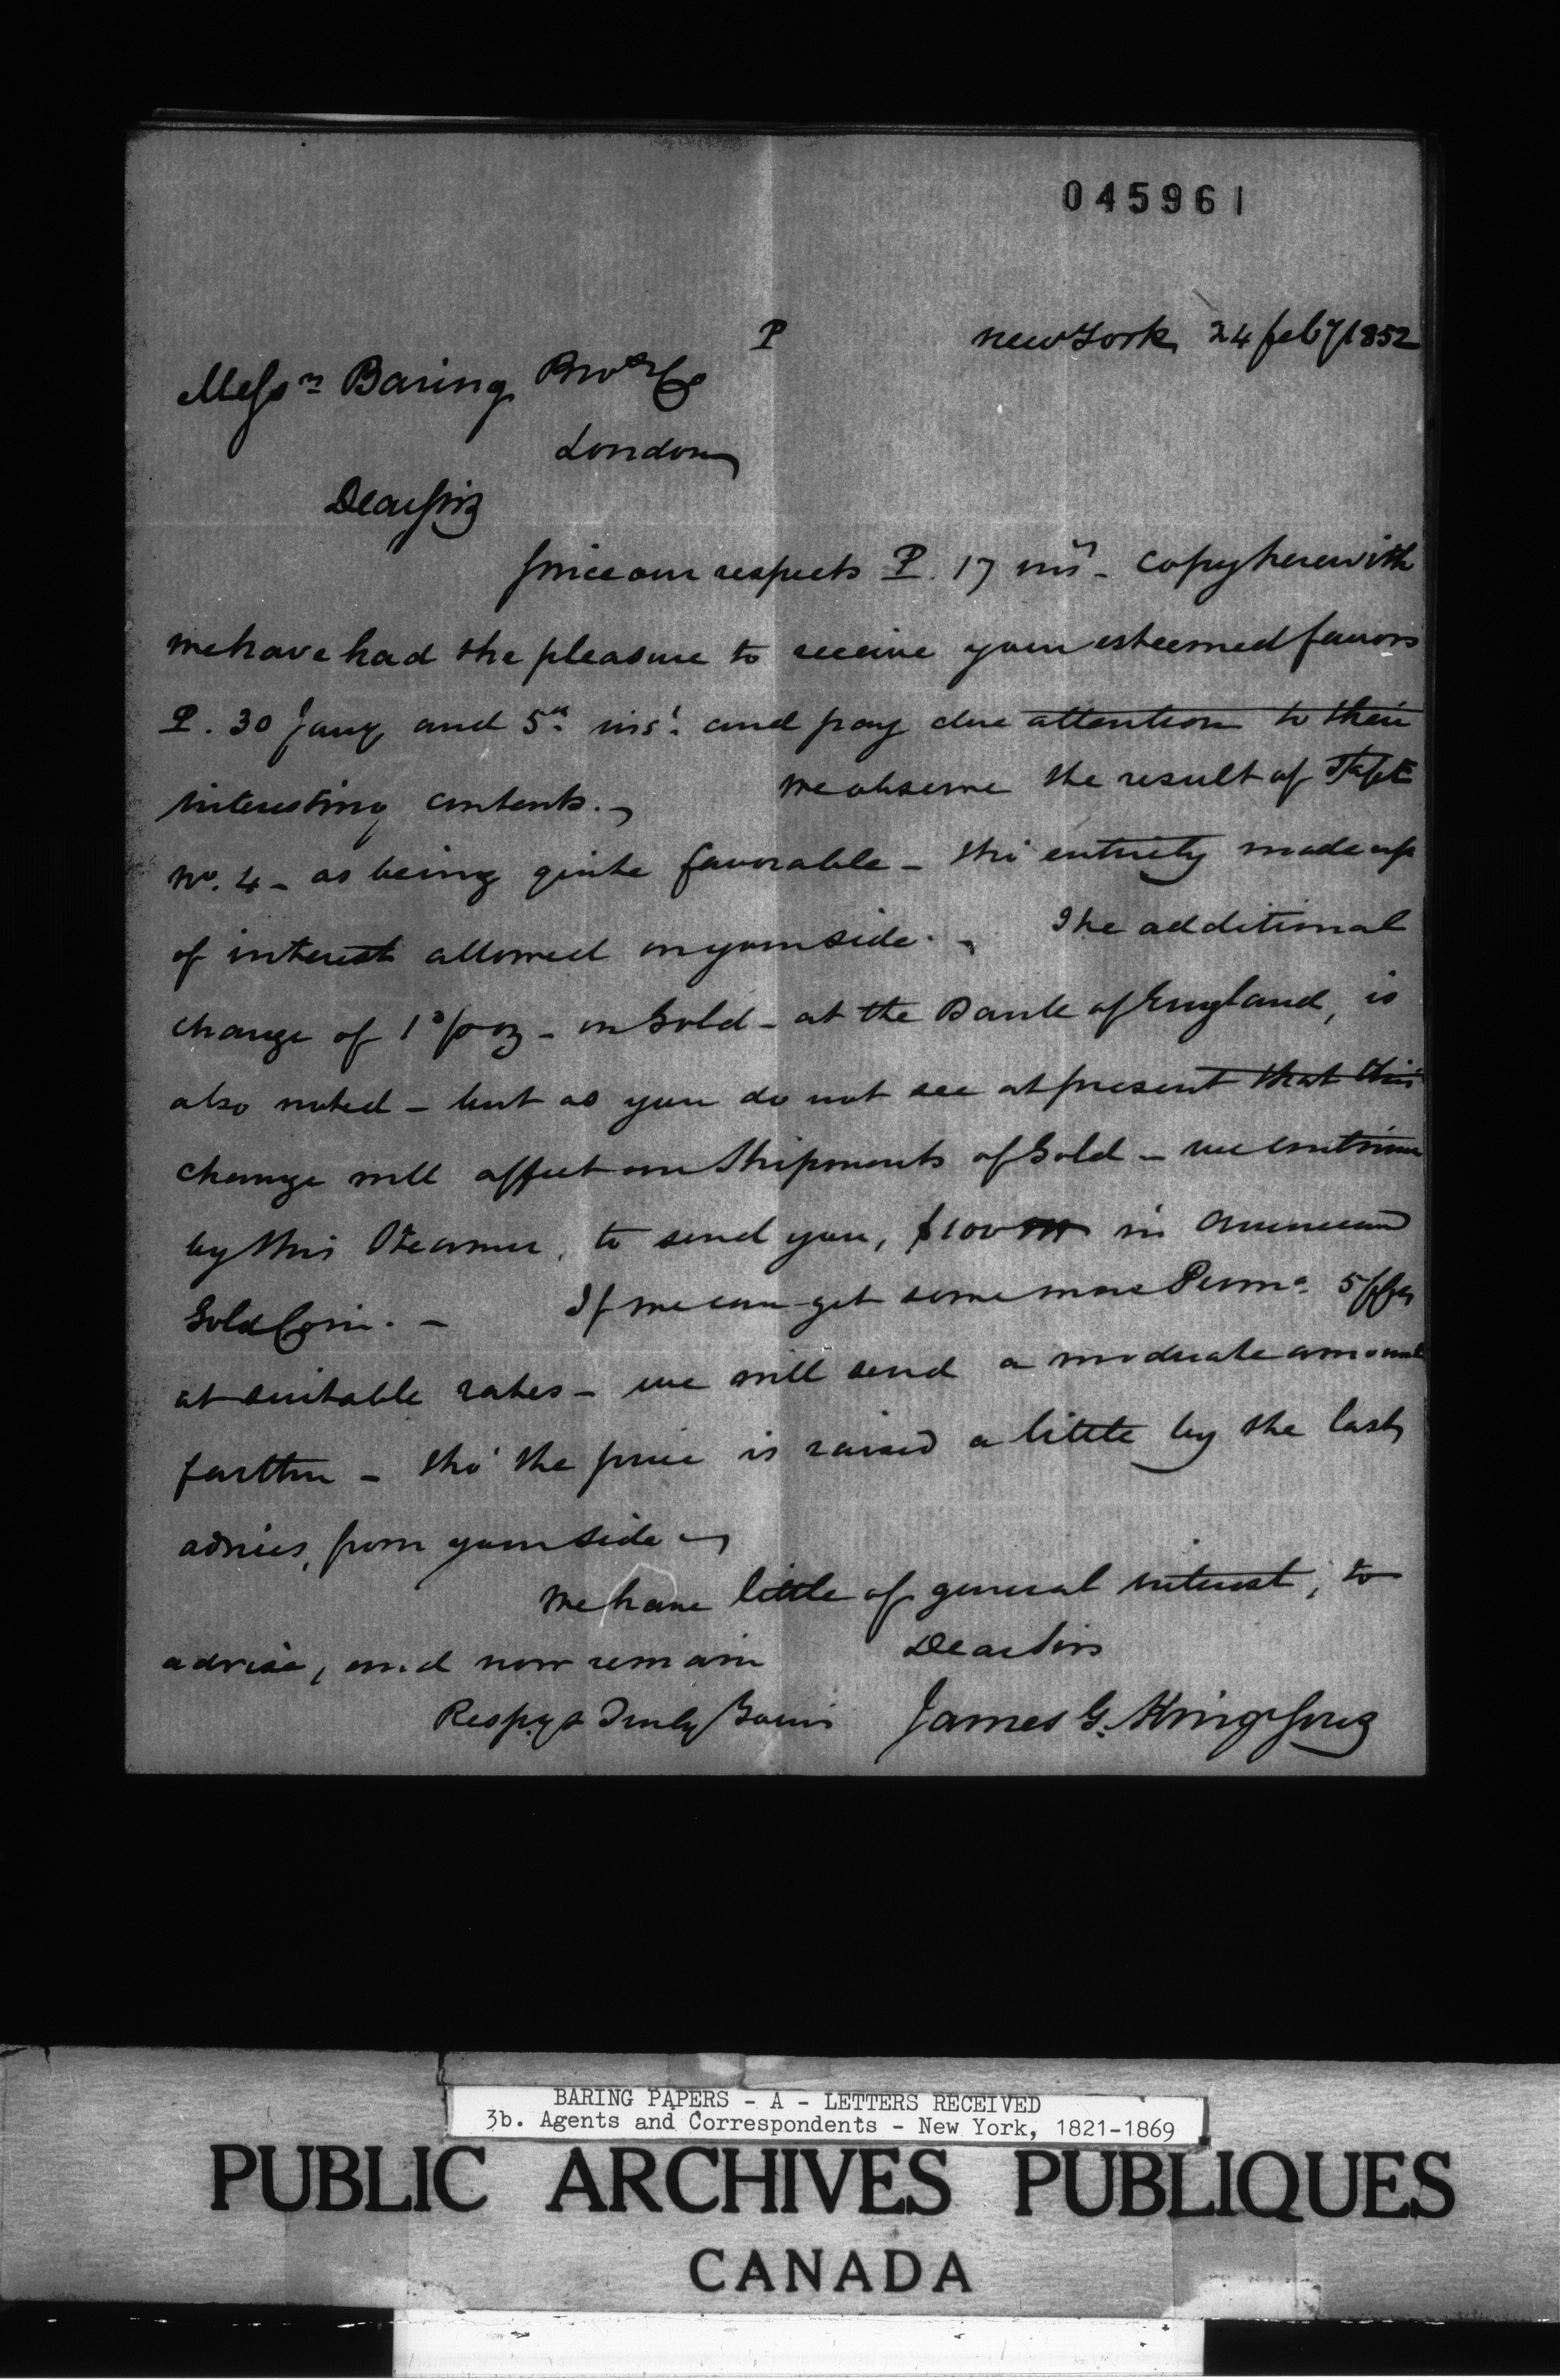 045961
P
New York 24 feby 1852
Messrs Baring Bros & Co
London
Dear Sirs
Since our respects P. 17 inst - copy herewith
we have had the pleasure to receive your esteemed favors
P. 30 Jany and 5th inst. and pay due attention to their
interesting contents. -
We observe the result of
No. 4 - as being quite favorable - tho' entirely made up
of interest allowed on your side. -
The additional
charge of 1d/poz - on Gold - at the Bank of England, is
also noted - but as you do not see at present that this
change will affect our Shipments of Gold - we continue
by this Steamer, to send you, $100m in American
Gold Coin. -
If we can get some more Penna. 5
at suitable rates - we will send a moderate amount
farther - tho' the price is raised a little by the last
advices, from your side -
We have little of general interest, to
advise, and now remain
Dear Sirs
Respy & Truly Yours
James G. King & Sons
BARING PAPERS - A - LETTERS RECEIVED
3b. Agents and Correspondents - New York, 1821-1869
PUBLIC ARCHIVES PUBLIQUES
CANADA